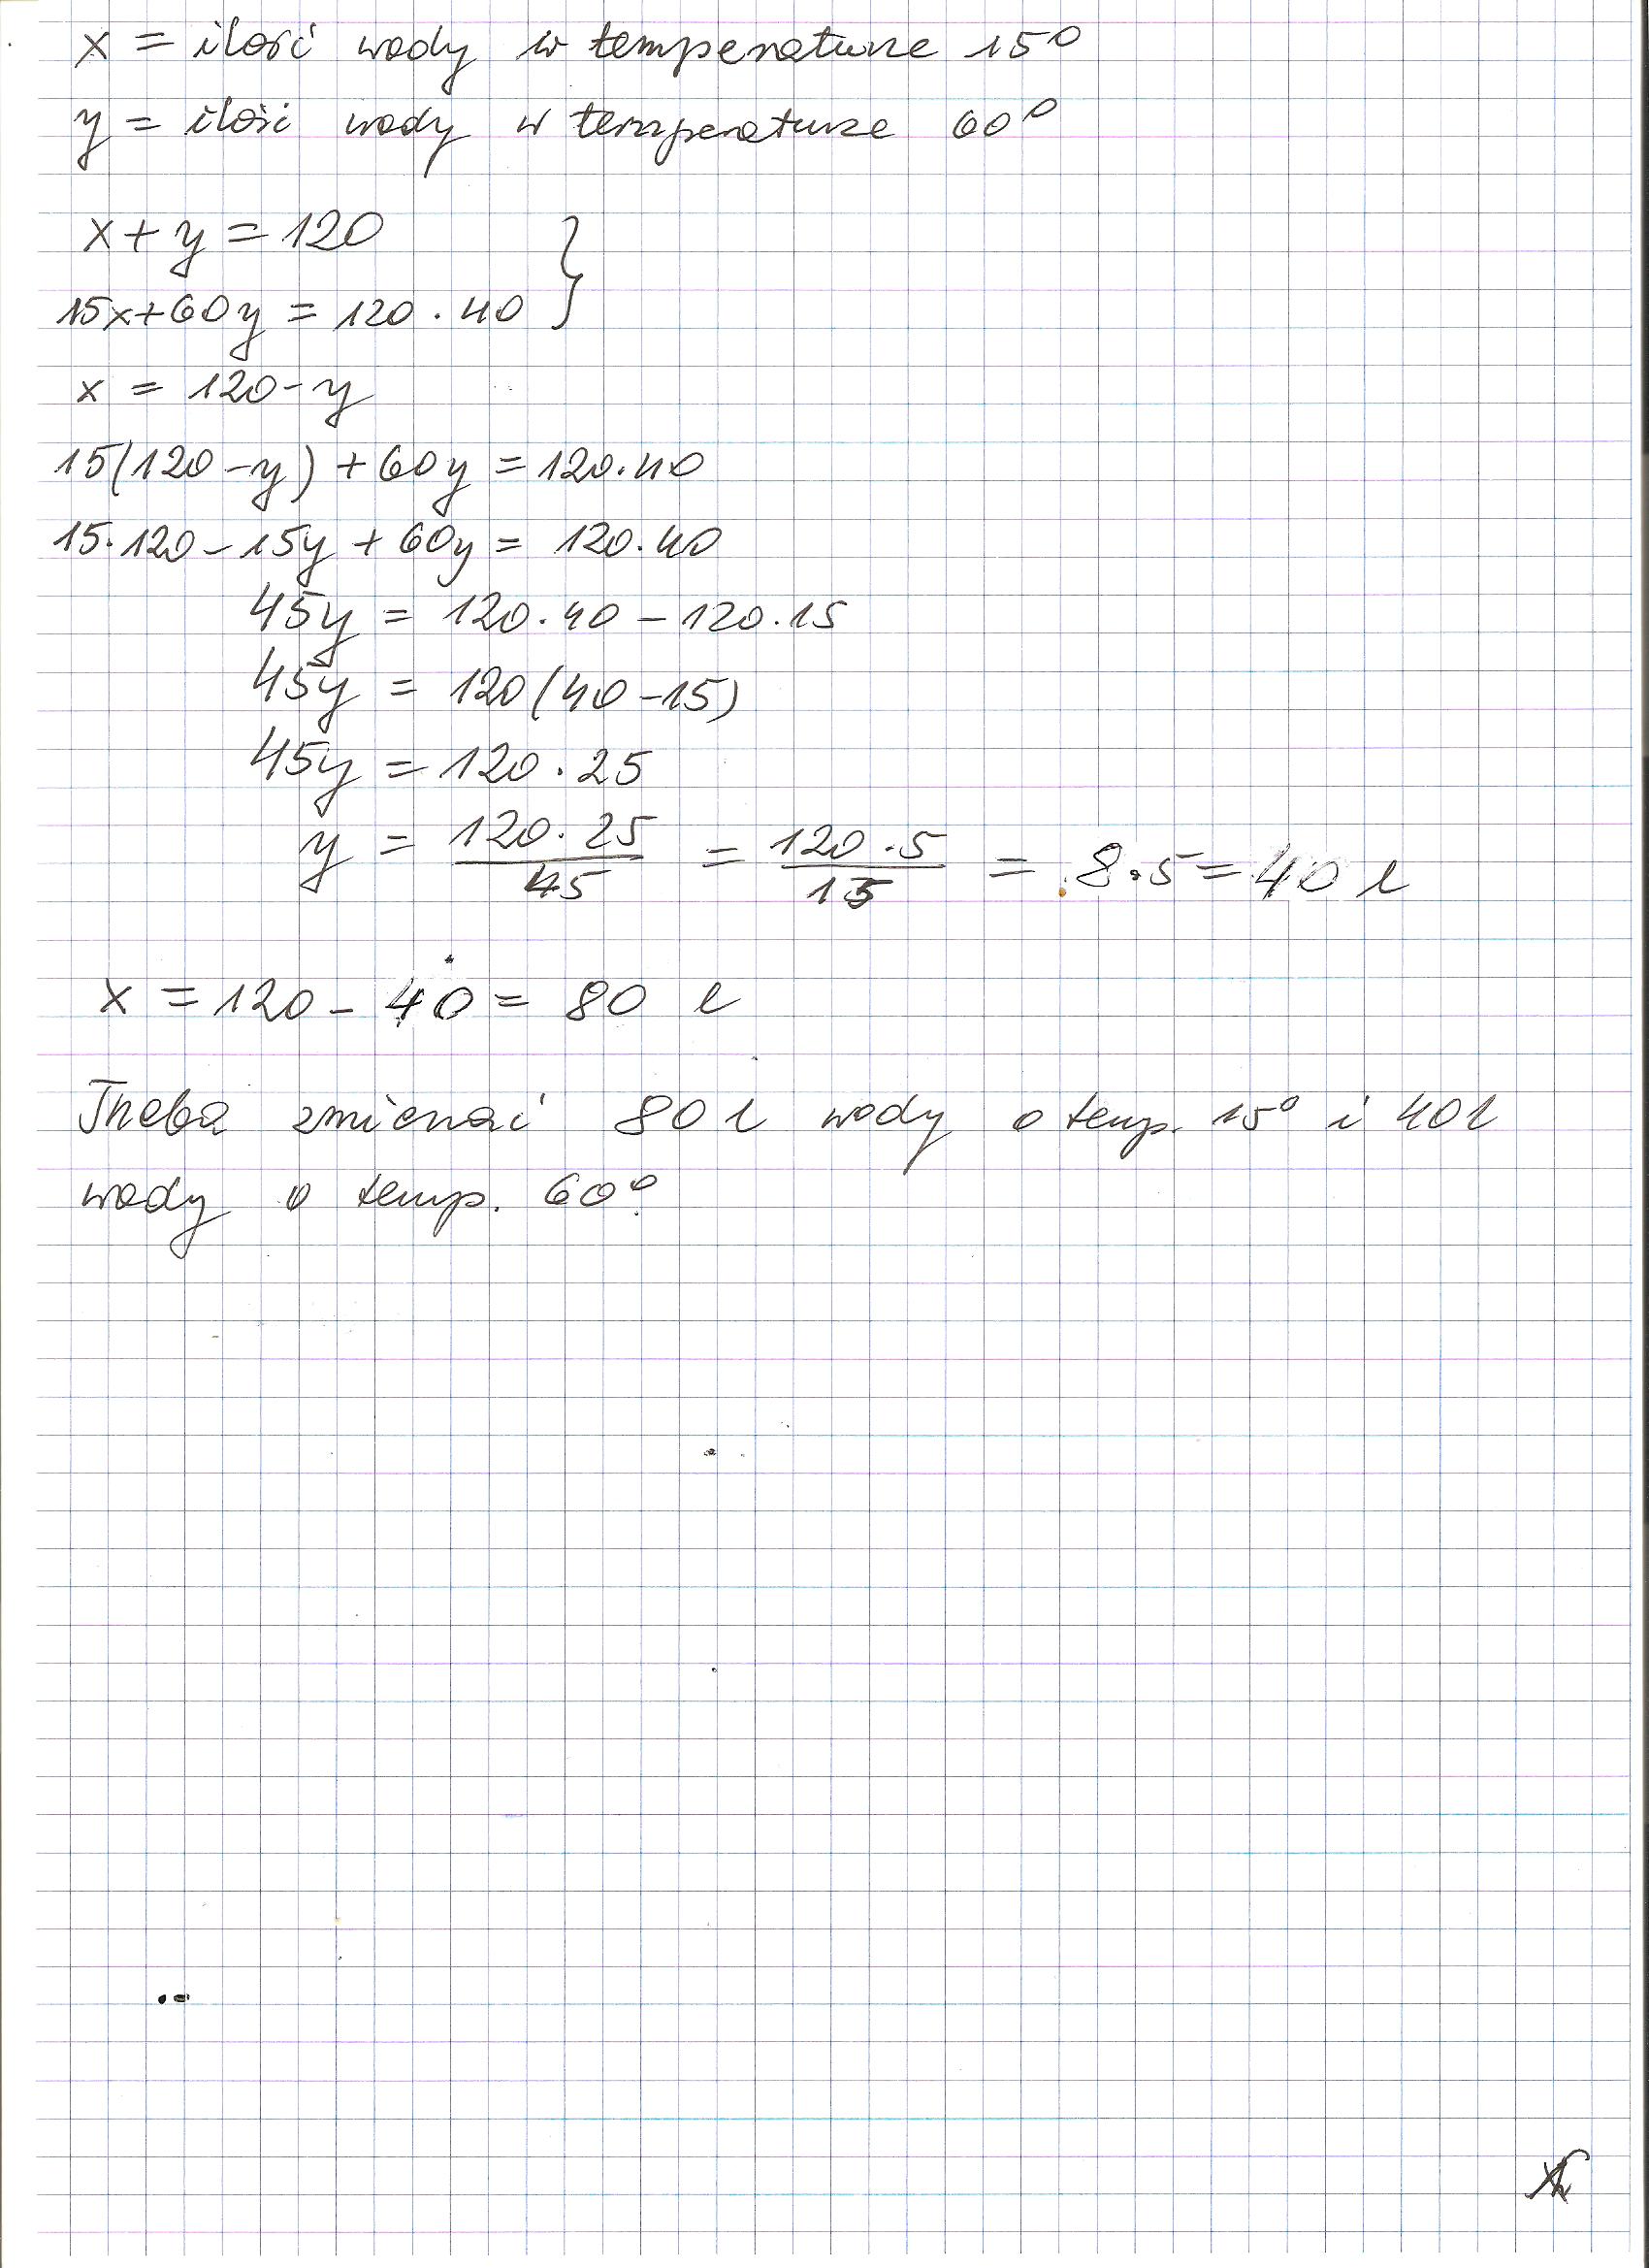 x = ilość wody w temperaturze 15°
y = ilość wody w temperaturze 60°
x + y = 120
15x + 60y = 120 · 40 }
x = 120 - y
15(120 - y) + 60y = 120 · 40
15 · 120 - 15y + 60y = 120 · 40
45y = 120 · 40 - 120 · 15
45y = 120(40 - 15)
45y = 120 · 25
y = 120 · 25 / 45 = 120 · 5 / 15 = 8 · 5 = 40 l
x = 120 - 40 = 80 l
Trzeba zmieszać 80 l wody o temp. 15° i 40 l
wody o temp. 60°.